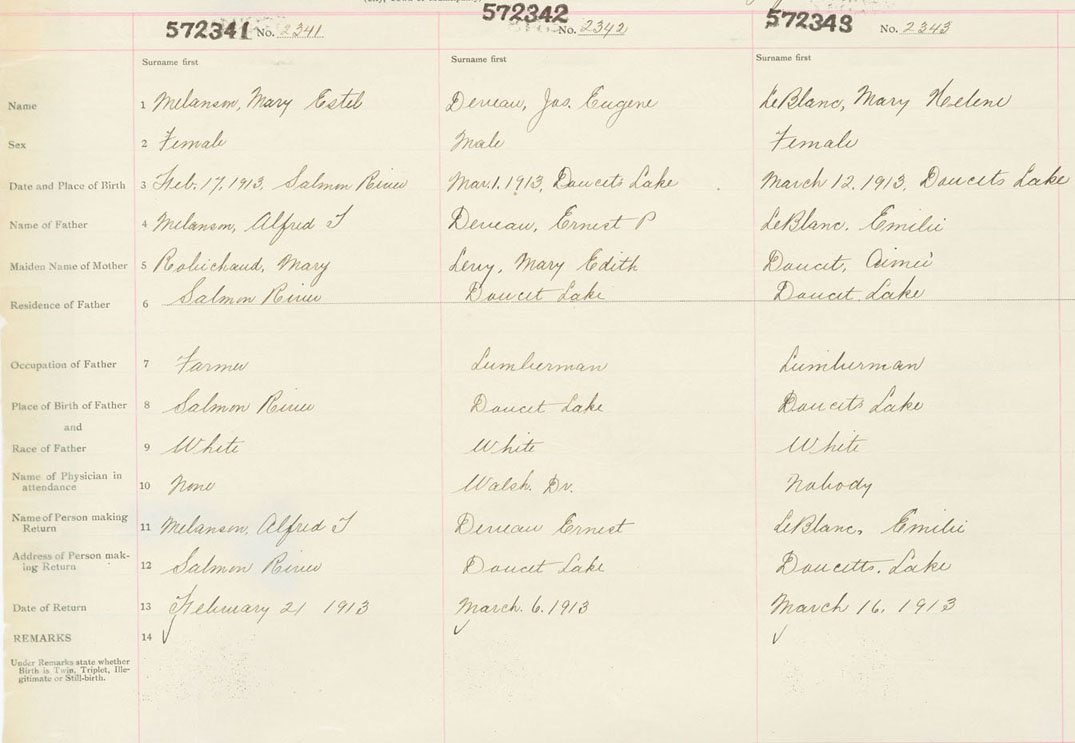 572341 No. 2341
572342 No. 2342
572343 No. 2343
Surname first Surname first Surname first
Name 1 Melanson, Mary Estel Deveau, Jos. Eugene LeBlanc, Mary Helene
Sex 2 Female Male Female
Date and Place of Birth 3 Feb. 17, 1913, Salmon River Mar. 1. 1913, Doucets Lake March 12, 1913, Doucets Lake
Name of Father 4 Melanson, Alfred Deveau, Ernest P LeBlanc, Emilie
Maiden Name of Mother 5 Robichaud, Mary Mary Edith Doucet, Aimee
Residence of Father 6 Salmon River Doucet Lake Doucet Lake
Occupation of Father 7 Farmer Lumberman Lumberman
Place of Birth of Father 8 Salmon River Doucet Lake Doucets Lake
and
Race of Father 9 White White White
Name of Physician in
attendance 10 None Walsh. Dr. Nobody
Name of Person making
Return 11 Melanson, Alfred Deveau Ernest LeBlanc, Emilie
Address of Person mak-
ing Return 12 Salmon River Doucet Lake Doucetts. Lake
Date of Return 13 February 21 1913 March. 6. 1913 March 16, 1913
REMARKS 14
Under Remarks state whether
Birth is Twin, Triplet, Ille-
gitimate or Still-birth.